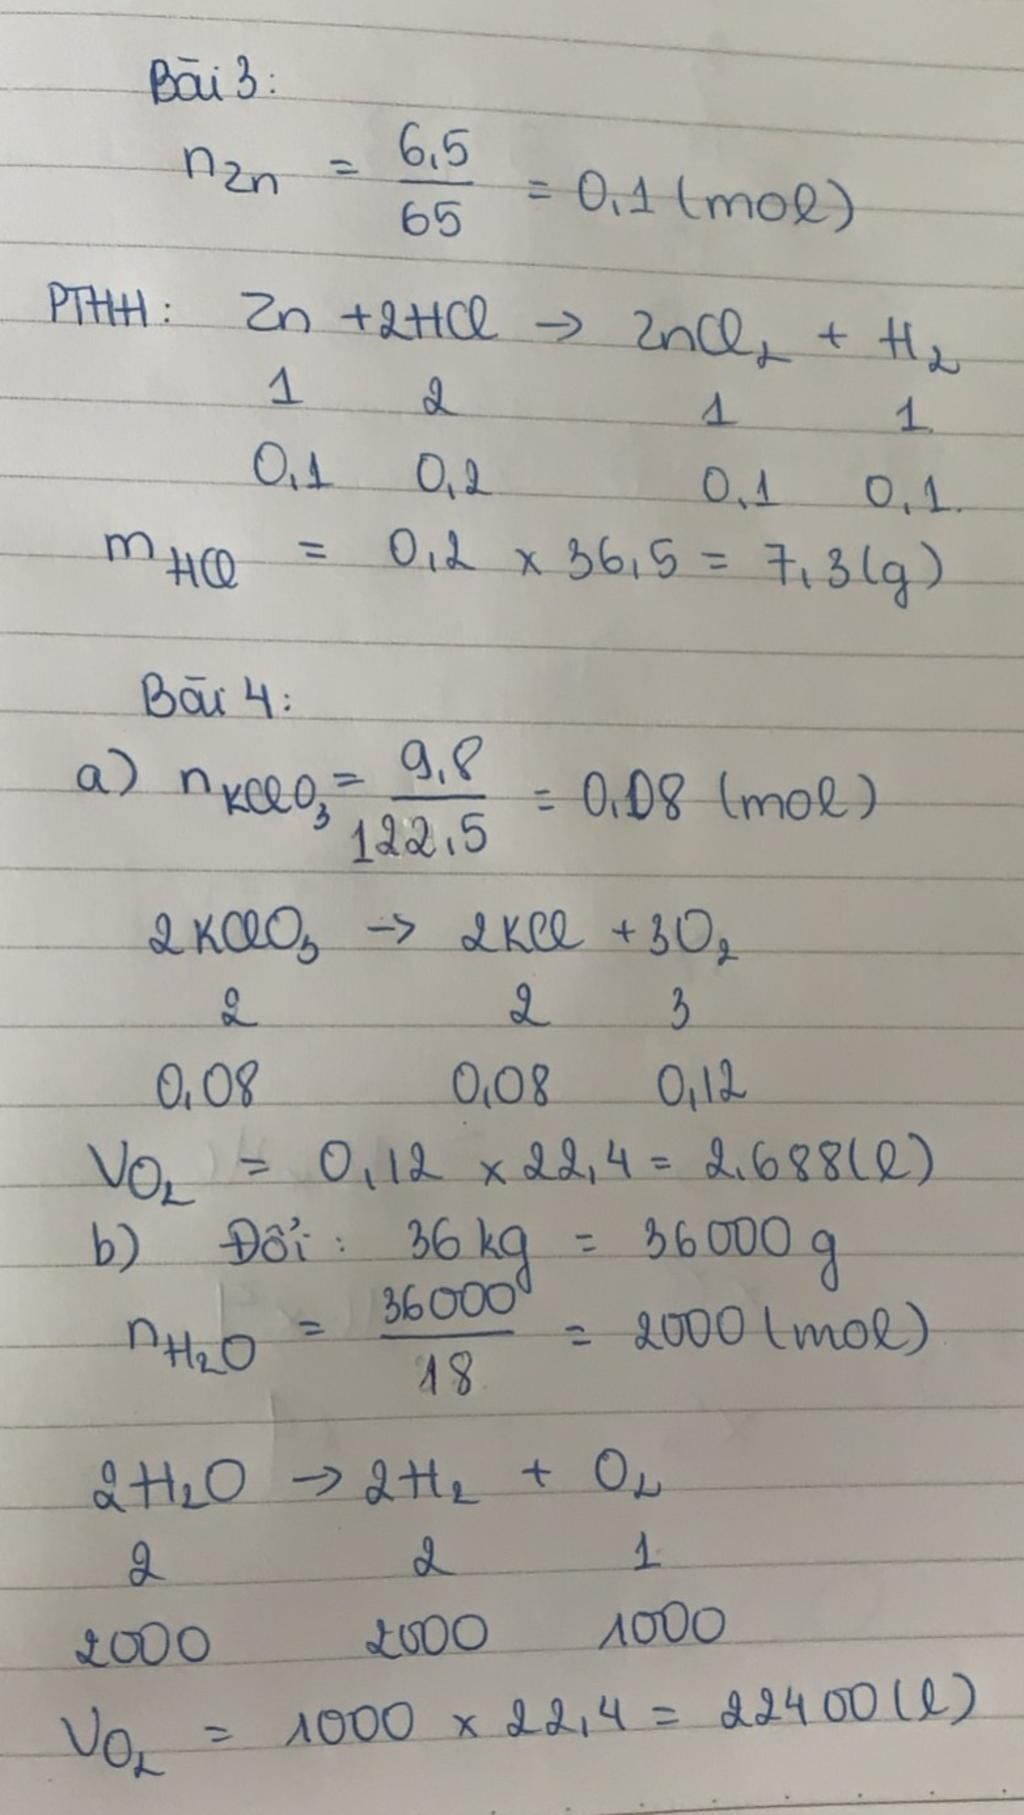 Bài 3:
nZn = 6,5/65 = 0,1 (mol)
PTHH: Zn + 2HCl → ZnCl₂ + H₂
1 2 1 1
0,1 0,2 0,1 0,1
mHCl = 0,2 × 36,5 = 7,3 (g)
Bài 4:
a) nKClO₃ = 9,8/122,5 = 0,08 (mol)
2KClO₃ → 2KCl + 3O₂
2 2 3
0,08 0,08 0,12
VO₂ = 0,12 × 22,4 = 2,688 (l)
b) Đổi: 36 kg = 36000 g
nH₂O = 36000/18 = 2000 (mol)
2H₂O → 2H₂ + O₂
2 2 1
2000 2000 1000
VO₂ = 1000 × 22,4 = 22400 (l)